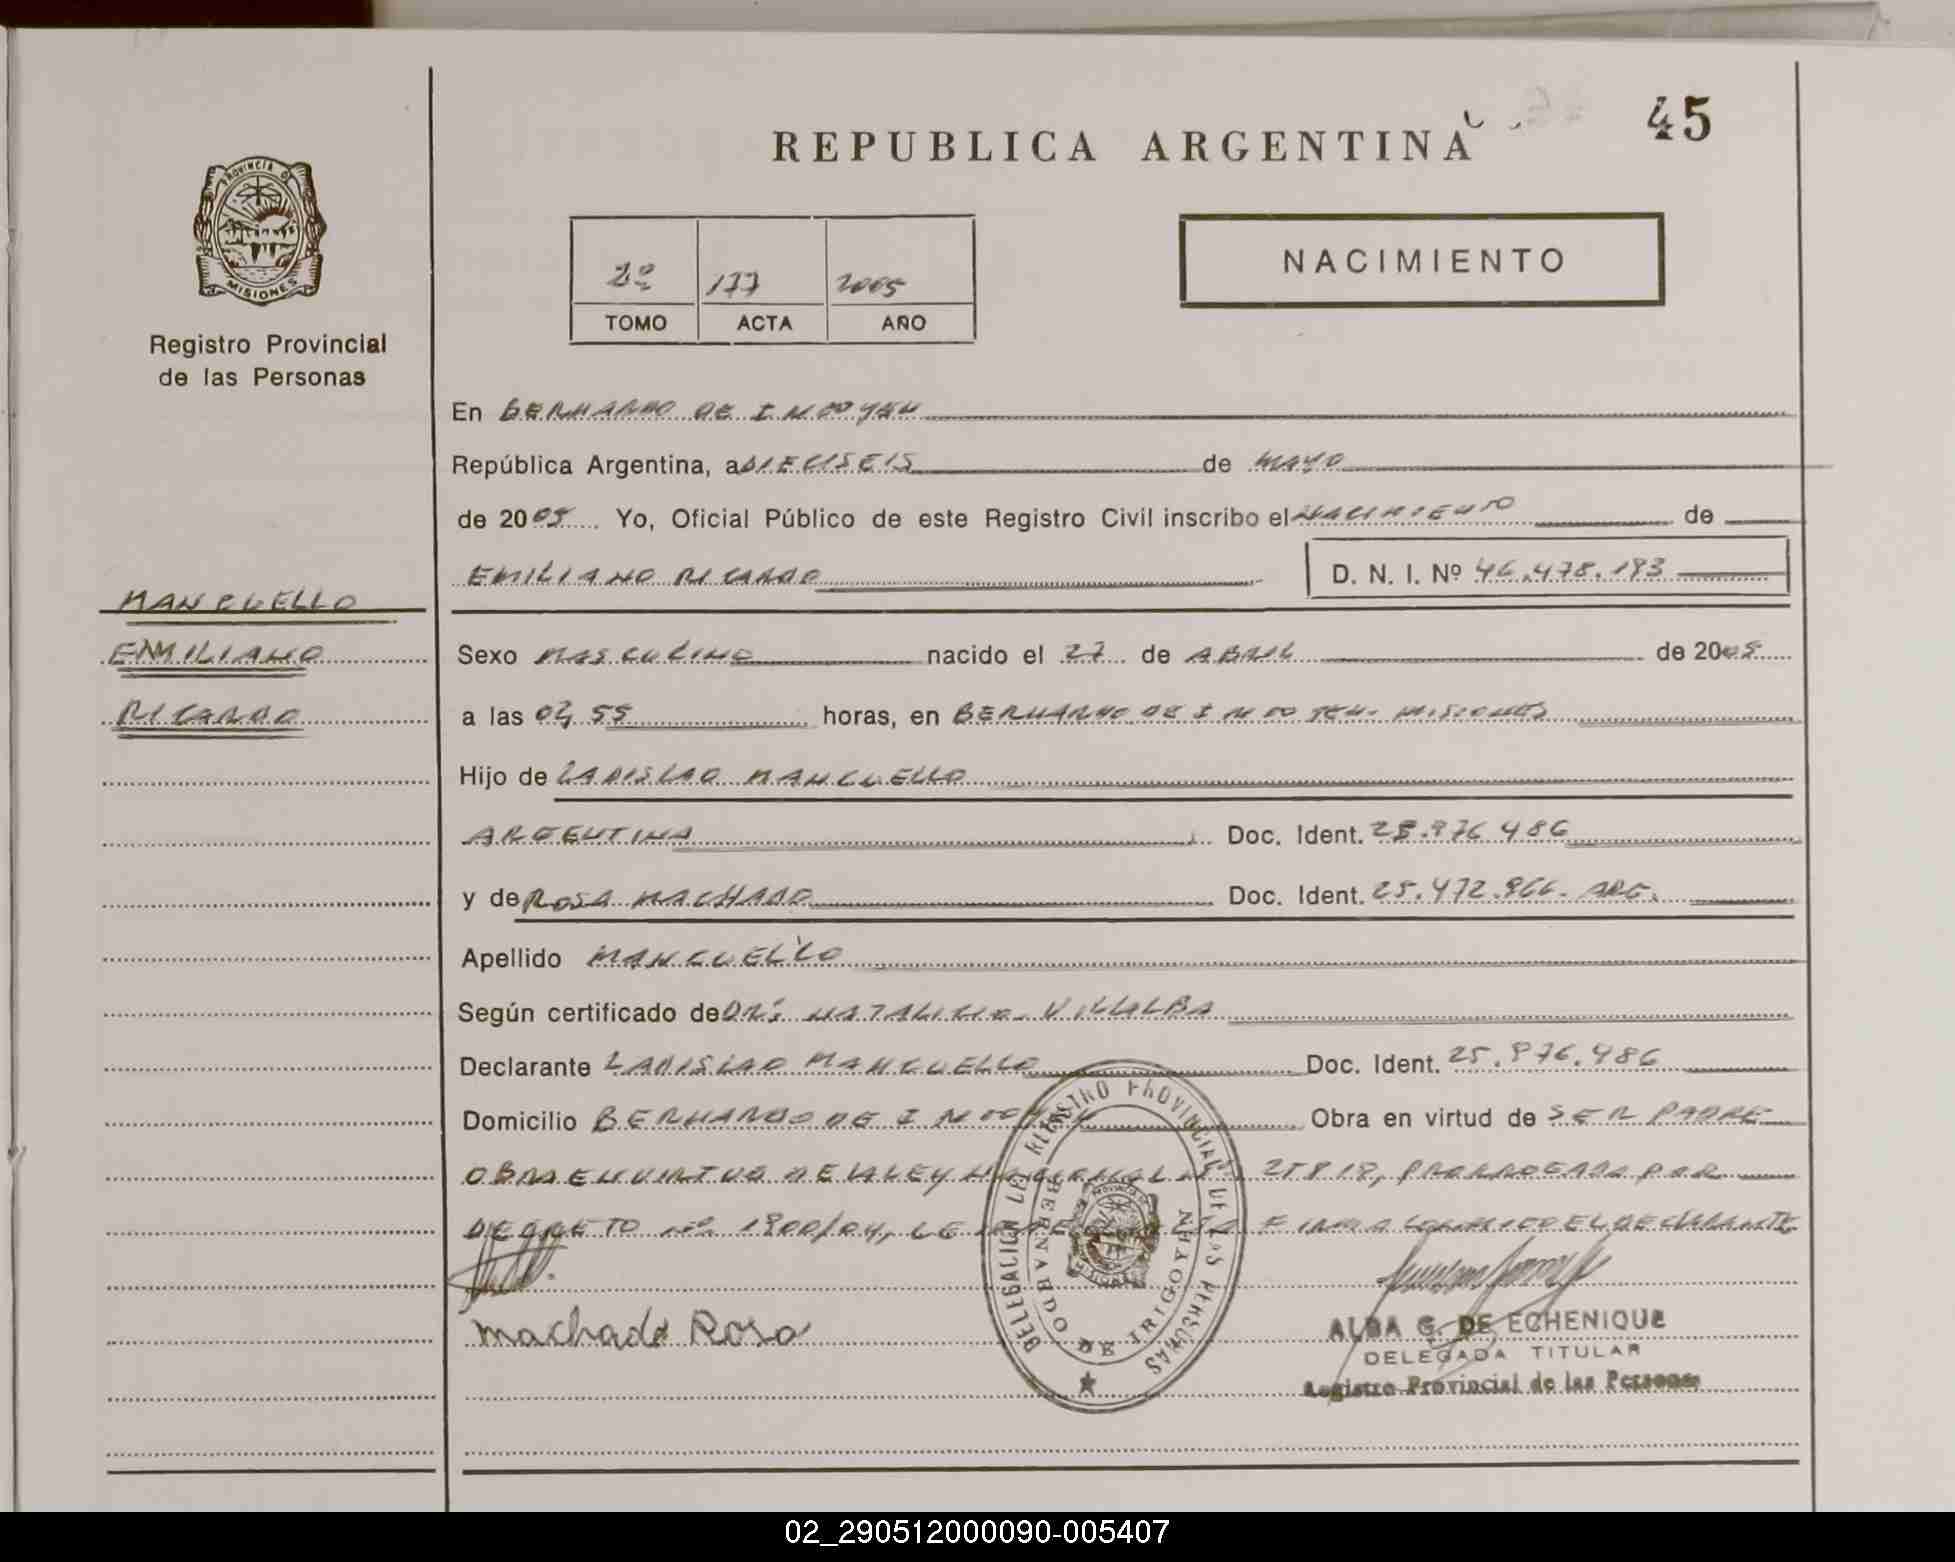 45
REPUBLICA ARGENTINA
PROVINCIA DE
MISIONES
Registro Provincial
de las Personas
2º 177 2005
TOMO ACTA AÑO
NACIMIENTO
En BERNARDO DE IRIGOYEN
República Argentina, a DIECISEIS de MAYO
de 2005 Yo, Oficial Público de este Registro Civil inscribo el NACIMIENTO de
EMILIANO RICARDO D. N. I. Nº 46.478.193
MANCUELLO
EMILIANO
RICARDO
Sexo MASCULINO nacido el 27 de ABRIL de 2005
a las 02,55 horas, en BERNARDO DE IRIGOYEN- MISIONES
Hijo de LADISLAO MANCUELLO
ARGENTINA Doc. Ident. 25.976.486
y de ROSA MACHADO Doc. Ident. 25.472.966. ARG.
Apellido MANCUELLO
Según certificado de DR: NATALICIO VILLALBA
Declarante LADISLAO MANCUELLO Doc. Ident. 25.976.486
Domicilio BERNARDO DE IRIGOYEN Obra en virtud de SER PADRE
OBRA EN VIRTUD DE LA LEY NACIONAL Nº 25818, PRORROGADA POR
DECRETO Nº 1900/04, FIRMA CONMIGO EL DECLARANTE
machado Rosa
DELEGACION DEL REGISTRO PROVINCIAL DE LAS PERSONAS
BERNARDO DE IRIGOYEN
ALBA G. DE ECHENIQUE
DELEGADA TITULAR
Registro Provincial de las Personas
02_290512000090-005407